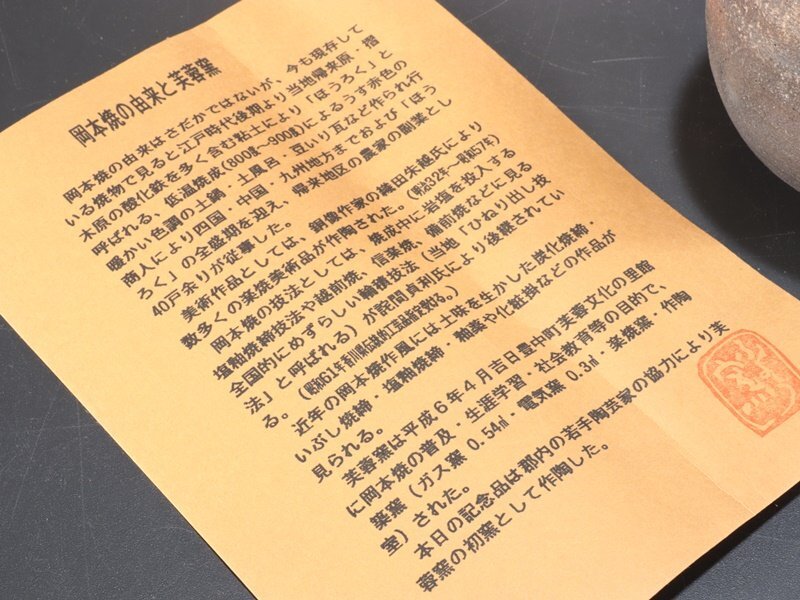 岡本焼の由来と芙蓉窯
岡本焼の由来はさだかではないが、今も現存して
いる焼物で見ると江戸時代後期より当地帰来原・摺
木原の酸化鉄を多く含む粘土により「ほうろく」と
呼ばれる、低温焼成(800度～900度)によるうす赤色の
暖かい色調の土鍋・土風呂・豆いり瓦など作られ行
商人により四国・中国・九州地方までおよび「ほう
ろく」の全盛期を迎え、帰来地区の農家の副業とし
40戸余りが従事した。
美術作品としては、銅像作家の織田朱越氏により
数多くの楽焼美術品が作陶された。(昭和32年～昭和57年)
岡本焼の技法としては、焼成中に岩塩を投入する
塩釉焼締技法や越前焼、信楽焼、備前焼などに見る
全国的にめずらしい輪積技法(当地「ひねり出し技
法」と呼ばれる)が詫間貞利氏により後継されてい
る。(昭和61年香川県伝統的工芸品指定受ける。)
近年の岡本焼作風には土味を生かした炭化焼締・
いぶし焼締・塩釉焼締・釉薬や化粧掛などの作品が
見られる。
芙蓉窯は平成6年4月吉日豊中町芙蓉文化の里館
に岡本焼の普及・生涯学習・社会教育等の目的で、
築窯(ガス窯 0.54㎥・電気窯 0.3㎥・楽焼窯・作陶
室)された。
本日の記念品は郡内の若手陶芸家の協力により芙
蓉窯の初窯として作陶した。